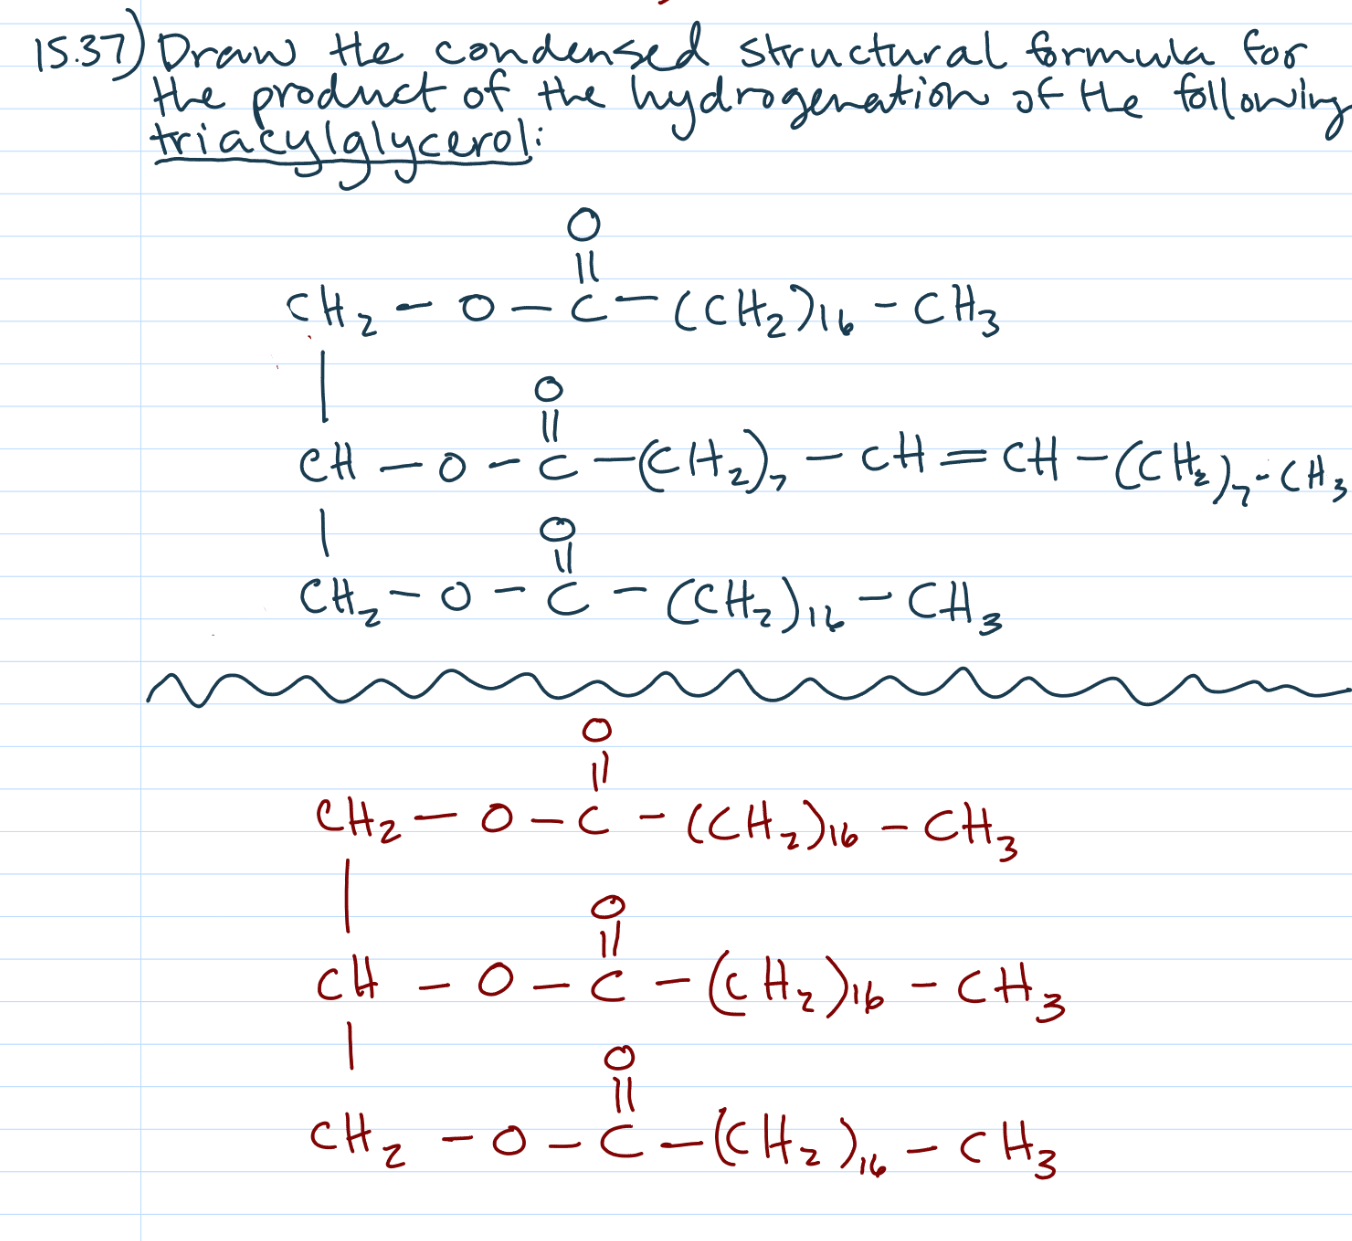 15.37) Draw the condensed structural formula for
the product of the hydrogenation of the following
triacylglycerol:
O
||
CH₂ – O – C – (CH₂)₁₆ – CH₃
|
O
||
CH – O – C – (CH₂)₇ – CH = CH – (CH₂)₇ – CH₃
|
O
||
CH₂ – O – C – (CH₂)₁₆ – CH₃
O
||
CH₂ – O – C – (CH₂)₁₆ – CH₃
|
O
||
CH – O – C – (CH₂)₁₆ – CH₃
|
O
||
CH₂ – O – C – (CH₂)₁₆ – CH₃